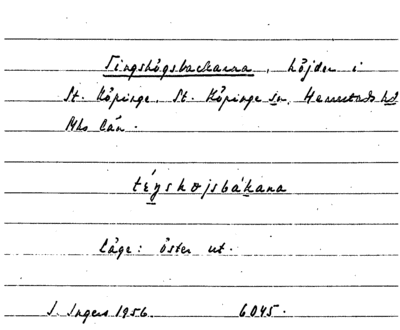 Tingshögsbackarna, höjder i
St. Köpinge, St. Köpinge sn, Herrestads hd
Mhs län.
téŋshøjsbákana
Läge: öster ut.
I. Ingers 1956. 6045.